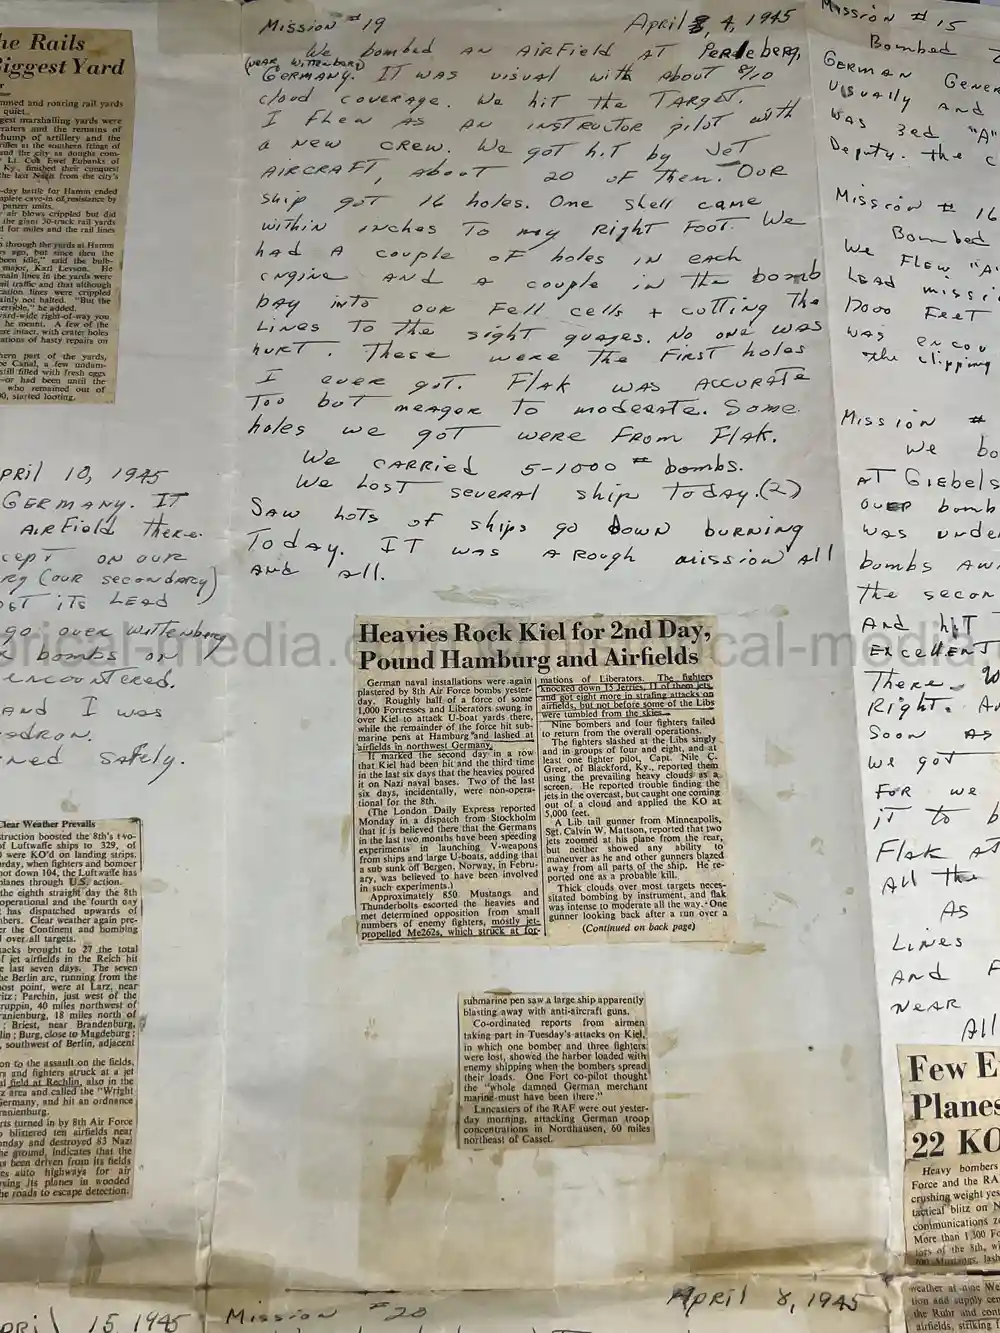 he Rails
Biggest Yard
mmed and roaring rail yards
quiet.
gest marshalling yards were
raters and the remains of
hump of artillery and the
rifles at the southern fringe of
Ewel Eubanks of
Ky., finished their conquest
the last Nazis from the city's
-day battle for Hamm ended
plete cave-in of resistance by
panzer units.
air blows crippled but did
the giant 30-track rail yards
d for miles and the rail lines
through the yards at Hamm
s ago, but since then the
been idle," said the bulb-
major, Karl Leyson. He
main lines in the yards were
ail traffic and that although
cation lines were crippled
ainly not halted. "But the
errible," he added.
yard-wide right-of-way you
he meant. A few of the
re intact, with crater holes
ations of hasty repairs on
ern part of the yards,
Canal, a few undam-
still filled with fresh eggs
had been until the
who remained out of
00, started looting.
pril 10, 1945
Germany. It
Airfield there.
cept on our
rg (our secondary)
ost its lead
go over Wittenberg
bombs on
encountered.
and I was
adron.
ned safely.
Clear Weather Prevails
struction boosted the 8th's two-
of Luftwaffe ships to 329, of
were KO'd on landing strips.
rday, when fighters and bomber
not down 104, the Luftwaffe has
planes through U.S. action.
the eighth straight day the 8th
operational and the fourth day
has dispatched upwards of
bers. Clear weather again pre-
er the Continent and bombing
l over all targets.
acks brought to 27 the total
f jet airfields in the Reich hit
e last seven days. The seven
he Berlin arc, running from the
ost point, were at Larz, near
itz; Parchin, just west of the
ruppin, 40 miles northwest of
ranienburg, 18 miles north of
; Briest, near Brandenburg,
lin; Burg, close to Magdeburg;
, southwest of Berlin, adjacent
on to the assault on the fields,
rs and fighters struck at a jet
st field at Rechlin, also in the
z area and called the "Wright
Germany, and hit an ordnance
ranienburg.
rts turned in by 8th Air Force
blistered ten airfields near
nday and destroyed 83 Nazi
he ground, indicates that the
as been driven from its fields
es auto highways for air
rsing its planes in wooded
he roads to escape detection.
pril 15, 1945
Mission #19 April 4, 1945
We bombed an airfield at Perleberg,
(near Wittenberg)
Germany. It was visual with about 8/10
cloud coverage. We hit the target.
I flew as an instructor pilot with
a new crew. We got hit by jet
aircraft, about 20 of them. Our
ship got 16 holes. One shell came
within inches to my right foot. We
had a couple of holes in each
engine and a couple in the bomb
bay into our fell cells + cutting the
lines to the sight guages. No one was
hurt. These were the first holes
I ever got. Flak was accurate
too but meager to moderate. Some
holes we got were from flak.
We carried 5-1000 # bombs.
We lost several ship today. (2)
Saw lots of ships go down burning
today. It was a rough mission all
and all.
Heavies Rock Kiel for 2nd Day,
Pound Hamburg and Airfields
German naval installations were again
plastered by 8th Air Force bombs yester-
day. Roughly half of a force of some
1,000 Fortresses and Liberators swung in
over Kiel to attack U-boat yards there,
while the remainder of the force hit sub-
marine pens at Hamburg and lashed at
airfields in northwest Germany.
It marked the second day in a row
that Kiel had been hit and the third time
in the last six days that the heavies poured
it on Nazi naval bases. Two of the last
six days, incidentally, were non-opera-
tional for the 8th.
(The London Daily Express reported
Monday in a dispatch from Stockholm
that it is believed there that the Germans
in the last two months have been speeding
experiments in launching V-weapons
from ships and large U-boats, adding that
a sub sunk off Bergen, Norway, in Febru-
ary, was believed to have been involved
in such experiments.)
Approximately 850 Mustangs and
Thunderbolts escorted the heavies and
met determined opposition from small
numbers of enemy fighters, mostly jet-
propelled Me262s, which struck at for-
mations of Liberators. The fighters
knocked down 15 Jerries, 11 of them jets,
and got eight more in strafing attacks on
airfields, but not before some of the Libs
were tumbled from the skies.
Nine bombers and four fighters failed
to return from the overall operations.
The fighters slashed at the Libs singly
and in groups of four and eight, and at
least one fighter pilot, Capt. Nile C.
Greer, of Blackford, Ky., reported them
using the prevailing heavy clouds as a
screen. He reported trouble finding the
jets in the overcast, but caught one coming
out of a cloud and applied the KO at
5,000 feet.
A Lib tail gunner from Minneapolis,
Sgt. Calvin W. Mattson, reported that two
jets zoomed at his plane from the rear,
but neither showed any ability to
maneuver as he and other gunners blazed
away from all parts of the ship. He re-
ported one as a probable kill.
Thick clouds over most targets neces-
sitated bombing by instrument, and flak
was intense to moderate all the way. One
gunner looking back after a run over a
(Continued on back page)
submarine pen saw a large ship apparently
blasting away with anti-aircraft guns.
Co-ordinated reports from airmen
taking part in Tuesday's attacks on Kiel,
in which one bomber and three fighters
were lost, showed the harbor loaded with
enemy shipping when the bombers spread
their loads. One Fort co-pilot thought
the "whole damned German merchant
marine must have been there."
Lancasters of the RAF were out yester-
day morning, attacking German troop
concentrations in Nordhausen, 60 miles
northeast of Cassel.
Mission #20 April 8, 1945
Mission #15
Bombed
German Gener
visually and
was 3rd "A"
Deputy. The c
Mission #16
Bombed
We flew "A"
lead missi
17000 feet
was encou
the clipping
Mission #
We bo
at Giebels
over bomb
was unde
bombs aw
the secon
and hit
excellent
There
right. A
soon as
we got
for we
it to b
Flak at
all the
As
lines
and F
near
All
Few E
Planes
22 KO
Heavy bombers
Force and the RA
crushing weight yes
tactical blitz on N
communications
More than 1,300 Fo
tors of the 8th, wi
Mustangs, lash
weather at nine We
tion and supply cen
the Ruhr and cont
airfields, striking f